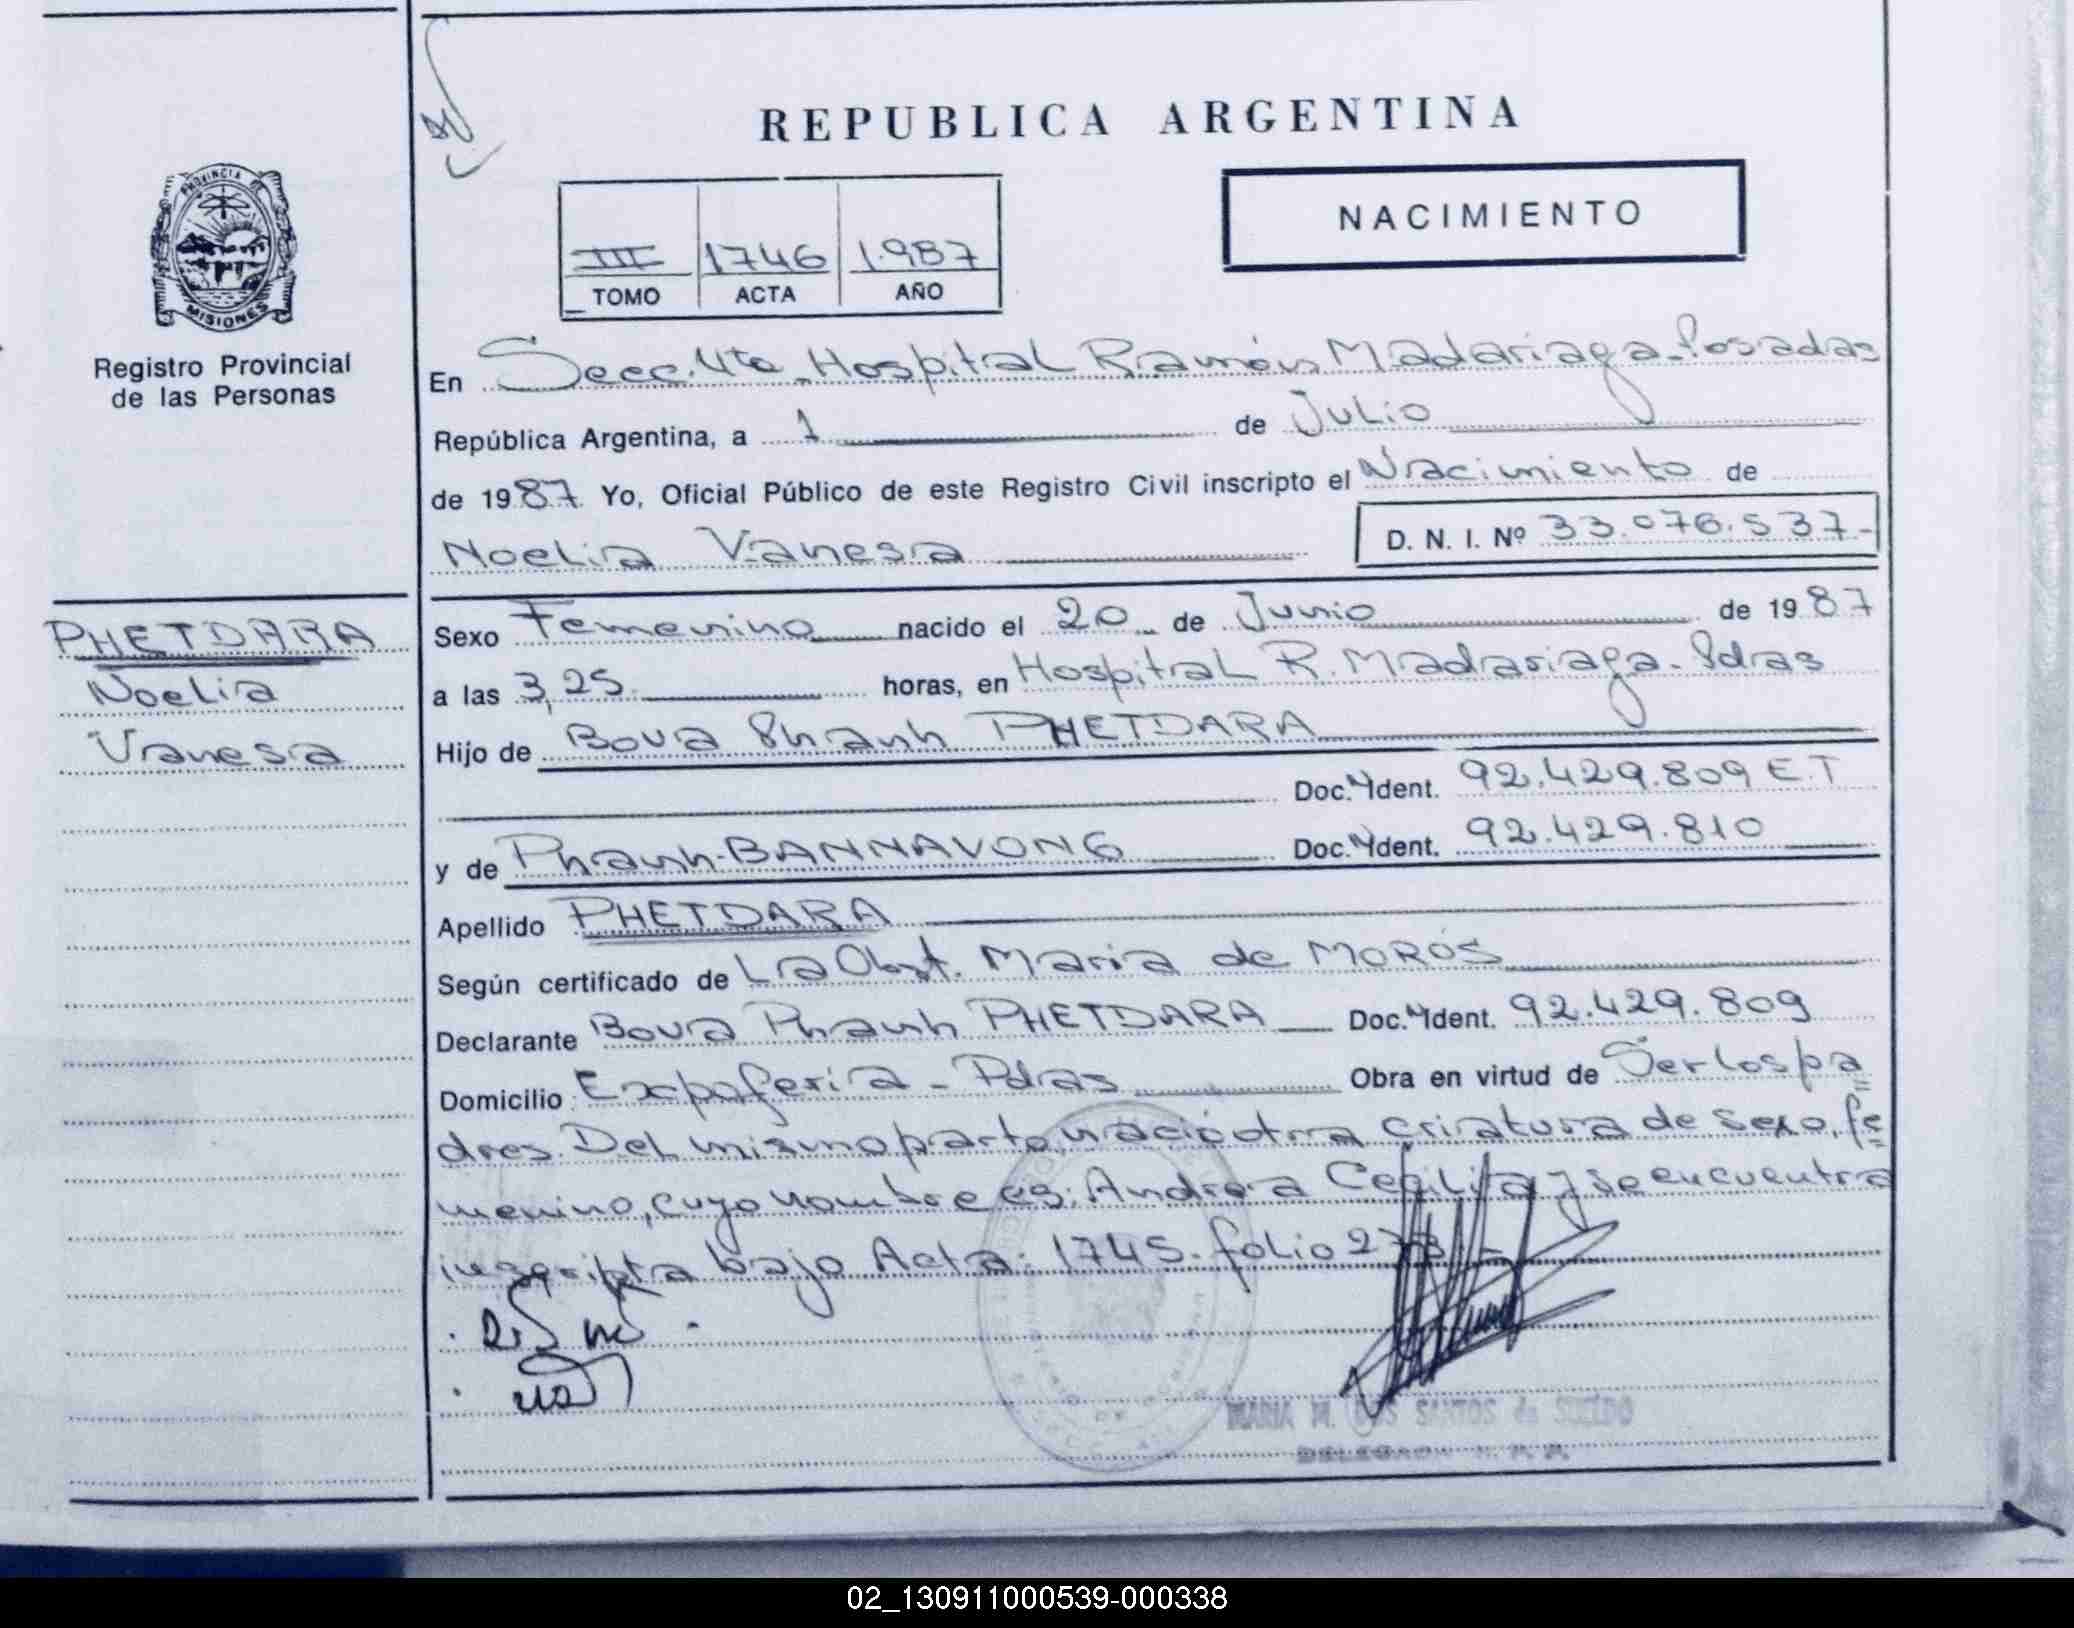 REPUBLICA ARGENTINA
NACIMIENTO
III 1746 1.987
TOMO ACTA AÑO
PROVINCIA DE
MISIONES
Registro Provincial
de las Personas
En Secc. 4ta Hospital Ramón Madariaga - Posadas
República Argentina, a 1 de Julio
de 1987 Yo, Oficial Público de este Registro Civil inscripto el Nacimiento de
Noelia Vanesa D. N. I. Nº 33.076.537-
PHETDARA
Noelia
Vanesa
Sexo Femenino nacido el 20 de Junio de 1987
a las 3,25 horas, en Hospital R. Madariaga - Pdas
Hijo de Boua Phanh PHETDARA
Doc. Ident. 92.429.809 E.T
y de Phanh - BANNAVONG Doc. Ident. 92.429.810
Apellido PHETDARA
Según certificado de La Obst. Maria de MOROS
Declarante Boua Phanh PHETDARA Doc. Ident. 92.429.809
Domicilio Expoferia - Pdas Obra en virtud de Ser los pa=
dres. Del mismo parto, nació otra criatura de sexo, fe=
menino, cuyo nombre es: Andrea Cecilia y se encuentra
inscripta bajo Acta: 1745. folio
MARIA M. DOS SANTOS de
02_130911000539-000338